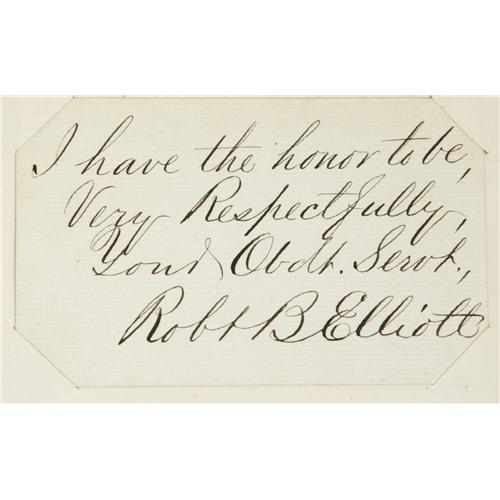 I have the honor to be,
Very Respectfully,
Your Obdt. Servt.,
Robt B Elliott